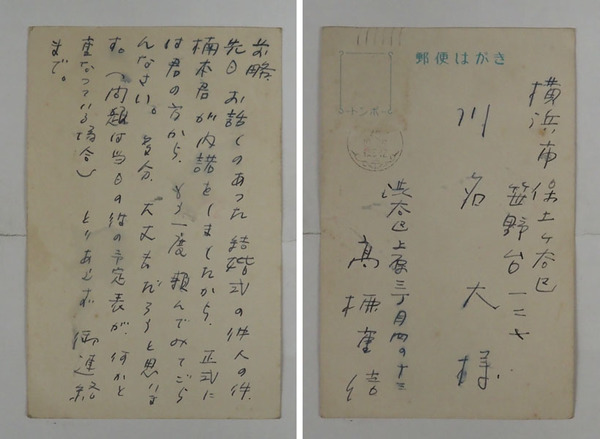 前略
先日 お話しのあった結婚式の仲人の件、
楠本君が内諾をしましたから、正式に
は君の方から、もう一度頼んでみてごら
んなさい。多分、大丈夫だろうと思いま
す。(問題は当日の彼の予定表が、何かと
重なっている場合) とりあえず 御連絡
まで。
郵便はがき
横浜市保土ヶ谷区
笹野台一二七
川名大様
渋谷区上原三丁目四の十三
高柳重信